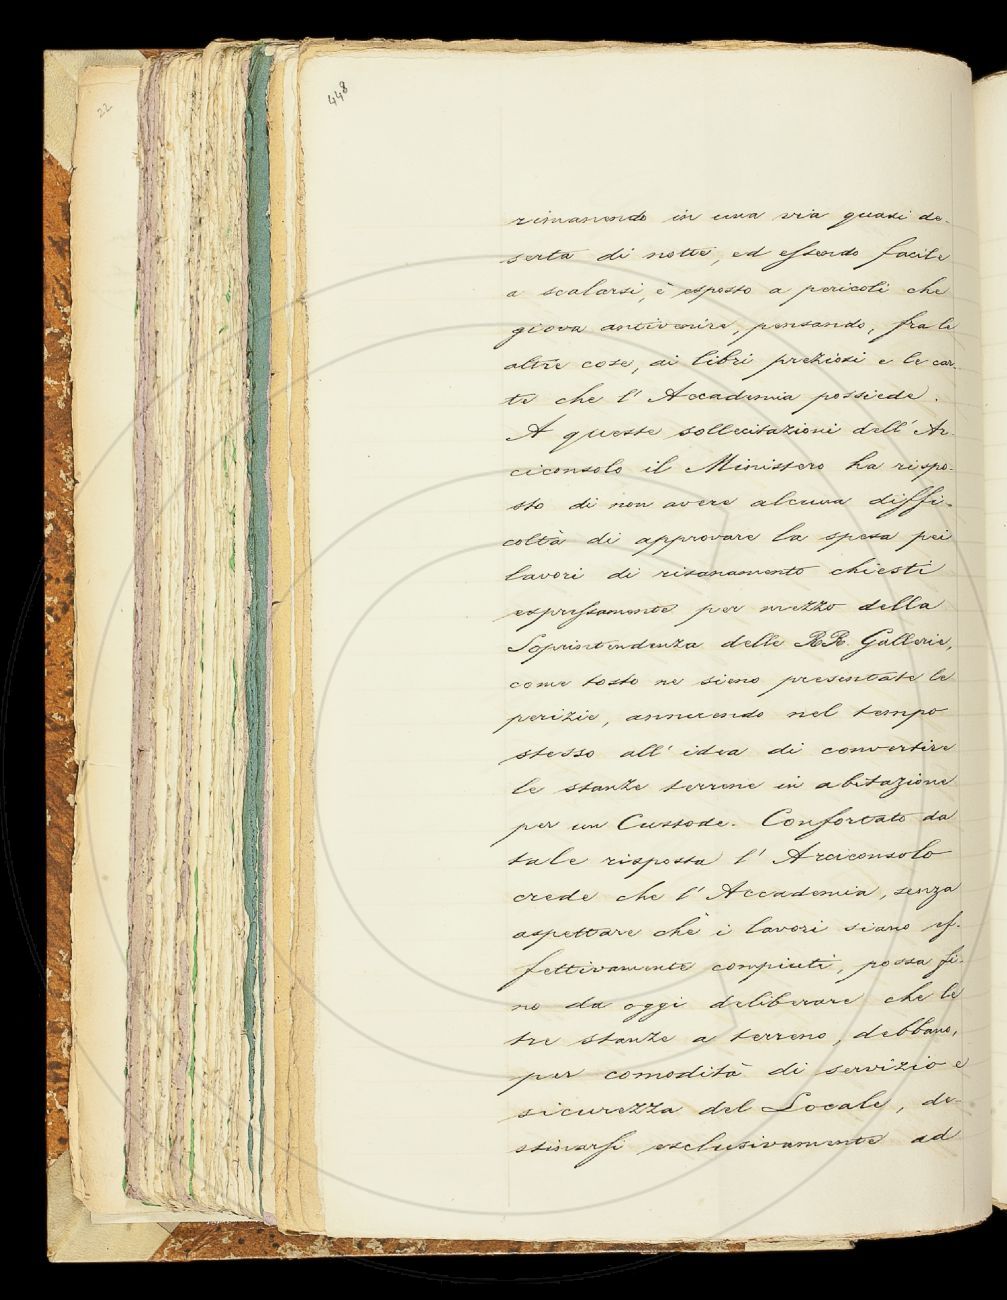 22
448
rimanendo in una via quasi de-
serta di notte, ed essendo facile
a scalarsi, è esposto a pericoli che
giova antivenire, pensando, fra le
altre cose, ai libri preziosi e le car-
te che l'Accademia possiede.
A queste sollecitazioni dell'Ar-
ciconsolo il Ministero ha rispo-
sto di non avere alcuna diffi-
coltà di approvare la spesa pei
lavori di risanamento chiesti
espressamente per mezzo della
Soprintendenza delle RR. Gallerie,
come tosto ne sieno presentate le
perizie, annuendo nel tempo
stesso all'idea di convertire
le stanze terrene in abitazione
per un Custode. Confortato da
tale risposta l'Arciconsolo
crede che l'Accademia, senza
aspettare chè i lavori siano ef-
fettivamente compiuti, possa fi-
no da oggi deliberare che le
tre stanze a terreno, debbano,
per comodità di servizio e
sicurezza del Locale, de-
stinarsi esclusivamente ad